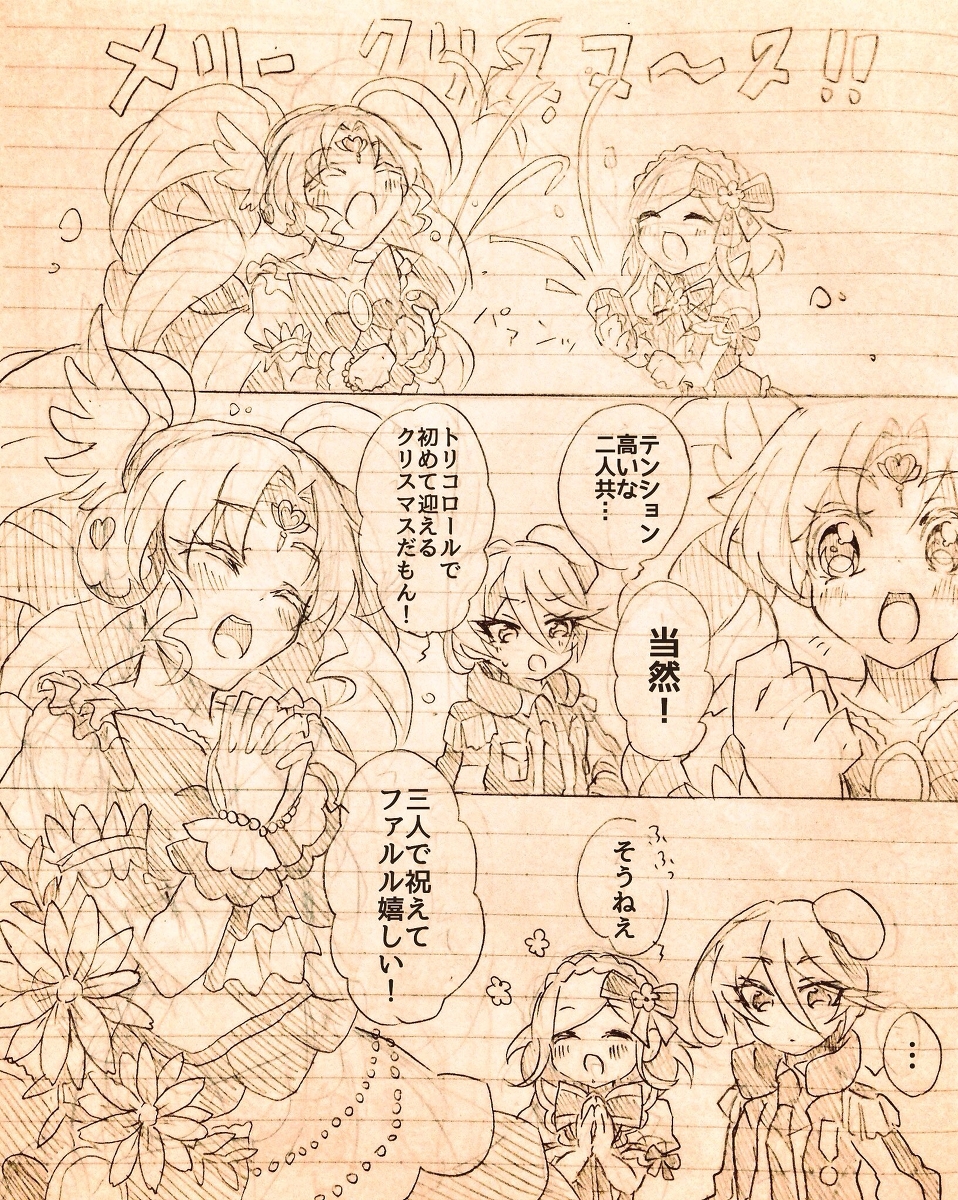 メリークリスマース!!
パァンッ
テンション
高いな
二人共…
当然！
トリコロールで
初めて迎える
クリスマスだもん！
三人で祝えて
ファルル嬉しい！
ふふっ
そうねえ
…